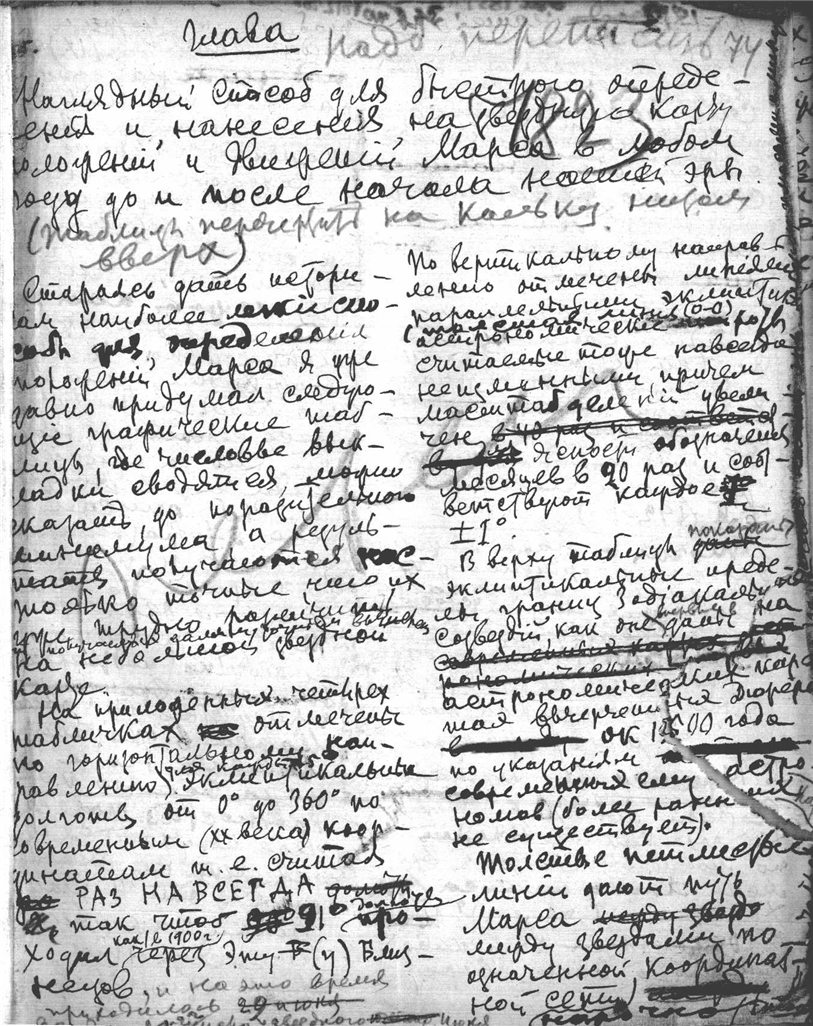 Глава
надо переписать 74
Наглядный способ для быстрого опреде-
ления и нанесения на звездную карту
положений и движений Марса в любом
году до и после начала нашей эры
1823
(таблицы перечертить на кальку низом
вверх)
Стараясь дать истори-
кам наиболее легкий спо-
соб для определения
положений Марса я уже
давно придумал следую-
щие графические таб-
лицы, где числовые вык-
ладки сводятся, можно
сказать до поразительного
минимума а резуль-
таты получаются нас-
только точные что их
уже трудно
на небольшой звездной
карте.
На приложенных четырех
табличках отмечены
по горизонтальному нап-
равлению эклиптикальные
долготы от 0° до 360° по
современным (XX века) коор-
динатам т.е. считая
РАЗ НАВСЕГДА
так чтоб 91° про-
ходил через Эту (η) Близ-
как в 1900 г
нецов, и на это время
приходилась
По вертикальному направ-
лению отмечены линиями
параллельными эклиптике
(толстая линия (0-0)
астрономические широты
считаемые тоже навсегда
неизменными причем
масштаб делений увели-
чен
ясности обозначения
месяцев в 20 раз и соот-
ветствует каждое
±1°.
Вверху таблицы показаны
эклиптикальные преде-
лы границ Зодиакальных
созвездий, как они даны на
впервые в
астрономических кар-
тах вычерченных Дюрером
ок 1500 года
по указаниям
современных ему астро-
номов (более ранних
не существует).
Толстые петлистые
линии дают путь
Марса
между звездами по
означенной координат-
ной сетке